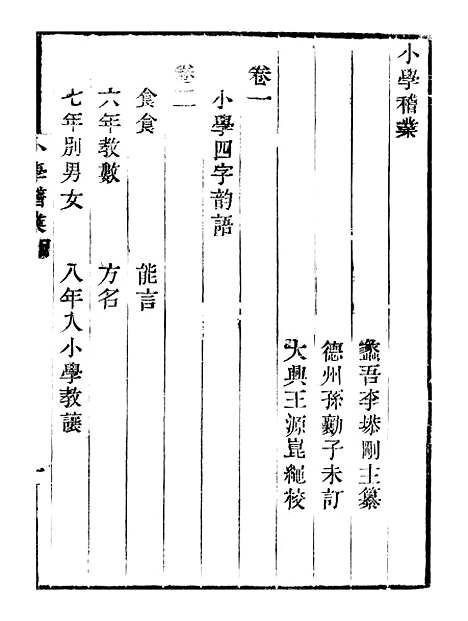 小學稽業
蠡吾李塨剛主纂
德州孫勷子未訂
大興王源崑繩校
卷一
小學四字韵語
卷二
食食　能言
六年教數　方名
七年別男女　八年入小學教讓
小學稽業
一